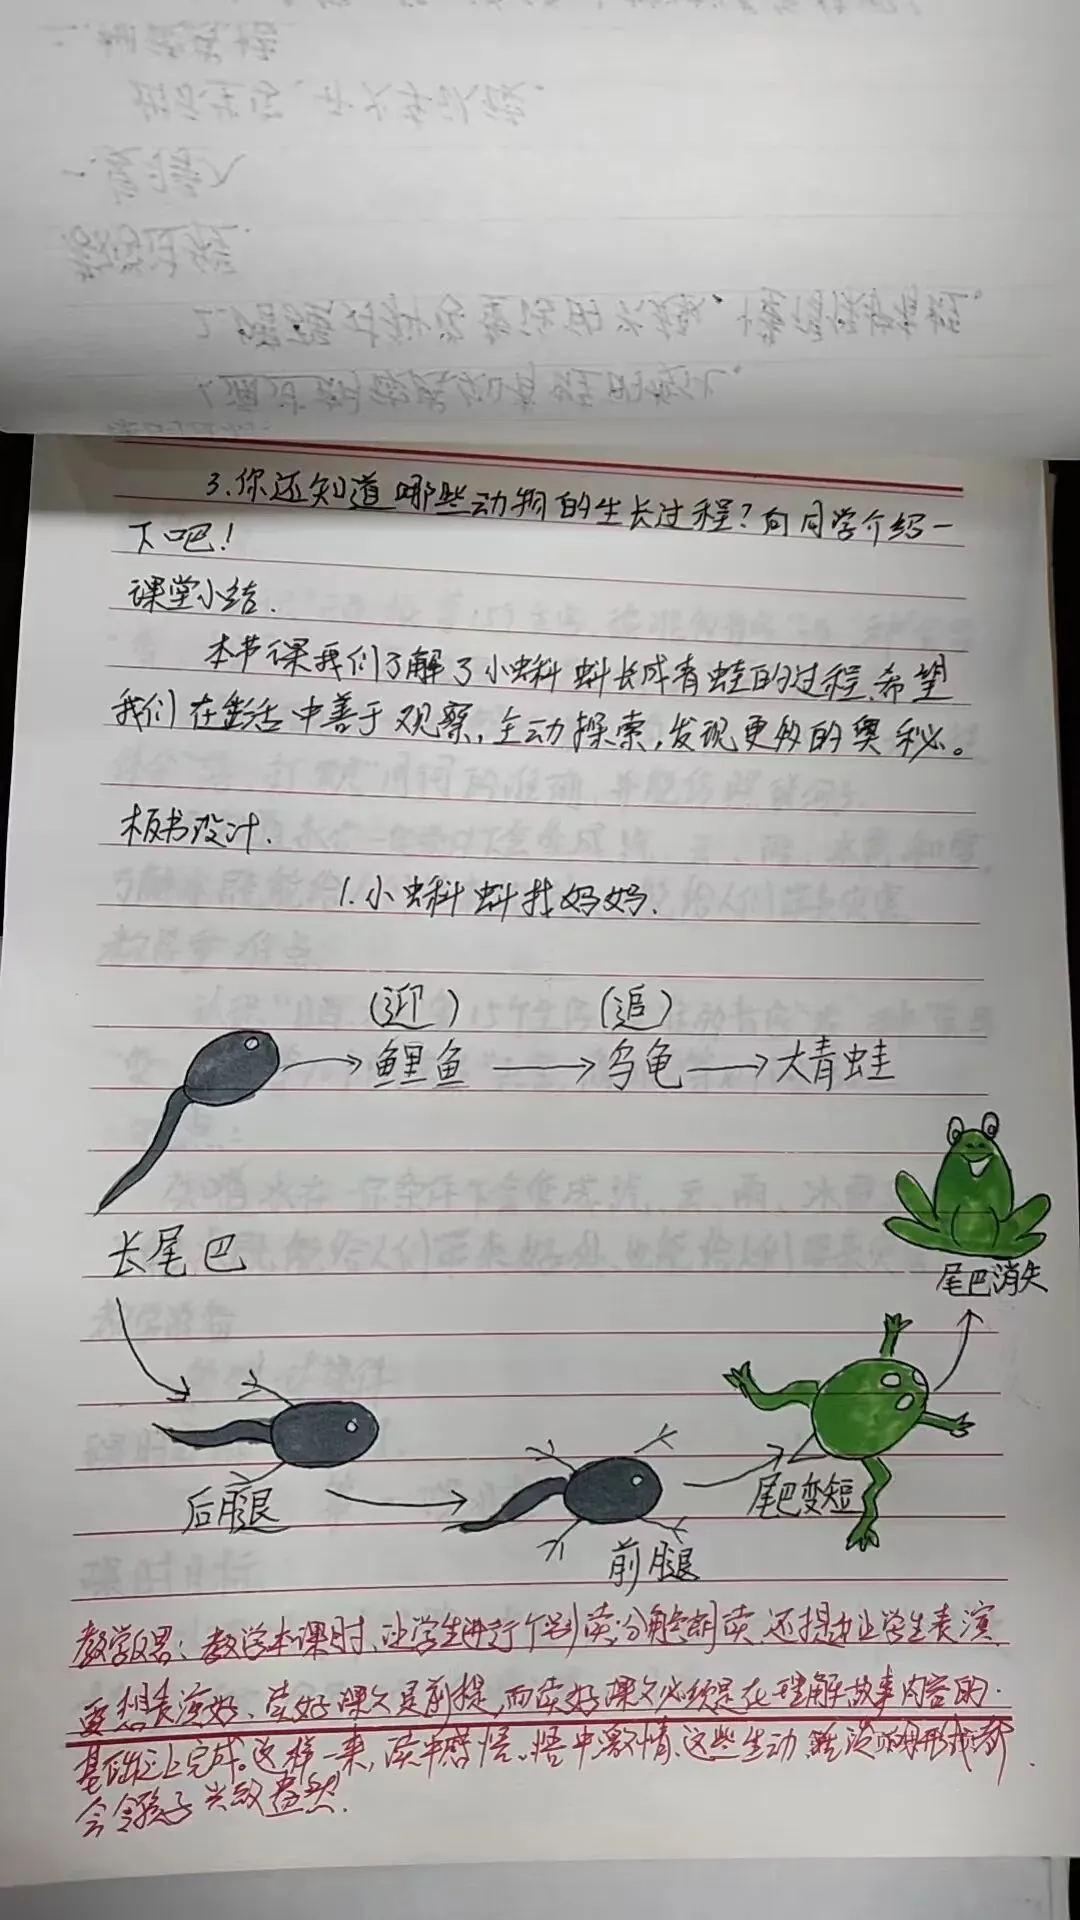 3.你还知道哪些动物的生长过程?向同学介绍一
下吧!
课堂小结.
本节课我们了解了小蝌蚪长成青蛙的过程,希望
我们在生活中善于观察,主动探索,发现更多的奥秘。
板书设计.
1.小蝌蚪找妈妈.
(迎) (追)
鲤鱼 乌龟 大青蛙
长尾巴
尾巴消失
后腿
尾巴变短
前腿
教学反思:教学本课时、让学生进行个别读,分角色朗读,还提出让学生表演
要想表演好、读好课文是前提,而读好课文必须是在理解故事内容的
基础之上完成。这样一来,读中感悟。悟中激情、这些生动
会令孩子兴致盎然.